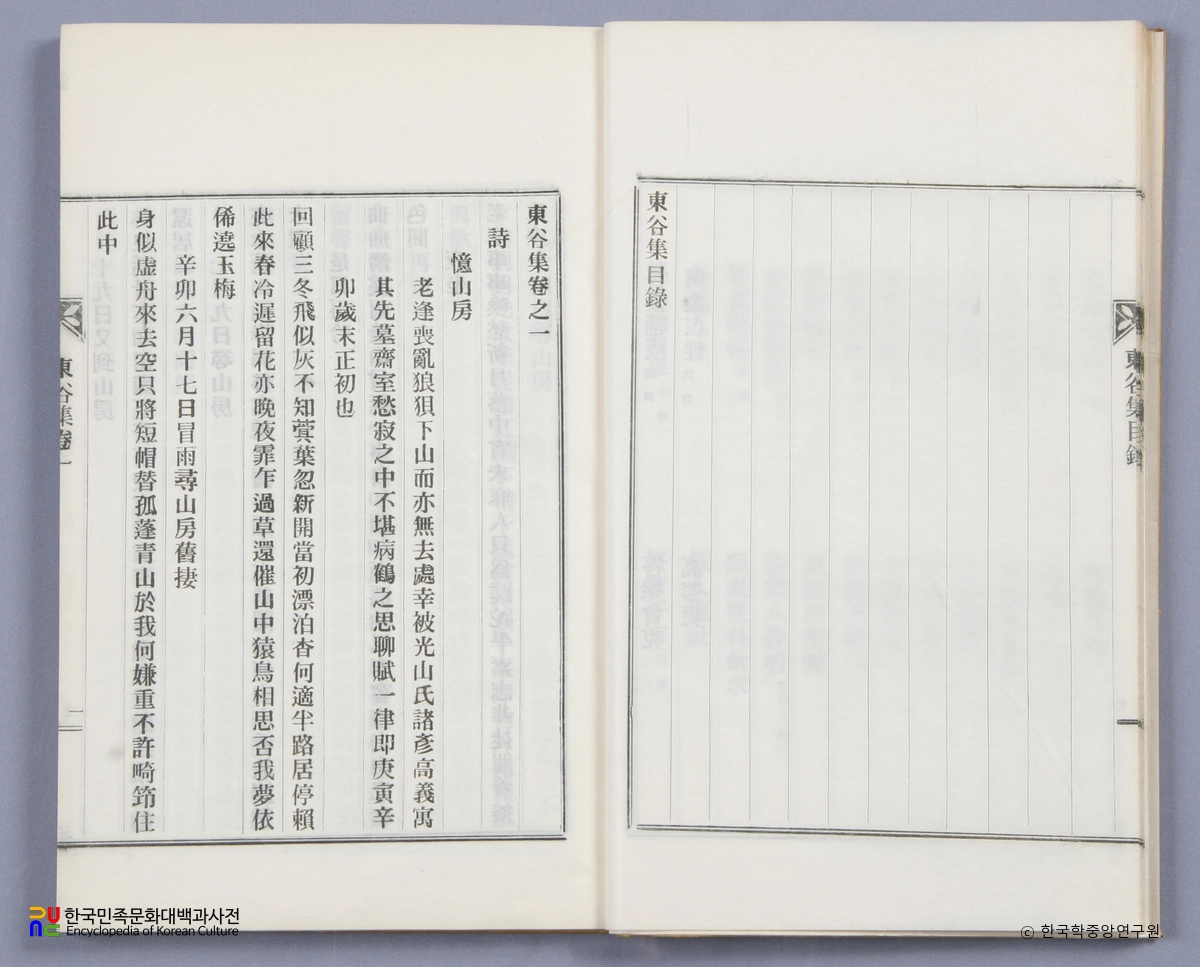 東谷集目錄
東谷集目錄
東谷集卷之一
詩
憶山房
老逢喪亂狼狽下山而亦無去處幸被光山氏諸彥高義寓
其先墓齋室愁寂之中不堪病鶴之思聊賦一律即庚寅辛
卯歲末正初也
回顧三冬飛似灰不知蓂葉忽新開當初漂泊杳何適半路居停賴
此來春冷遲留花亦晚夜霏乍過草還催山中猿鳥相思否我夢依
俙遶玉梅
辛卯六月十七日冒雨尋山房舊捿
身似虛舟來去空只將短帽替孤蓬青山於我何嫌重不許畸筇住
此中
東谷集卷一
一
한국민족문화대백과사전
Encyclopedia of Korean Culture
ⓒ 한국학중앙연구원.